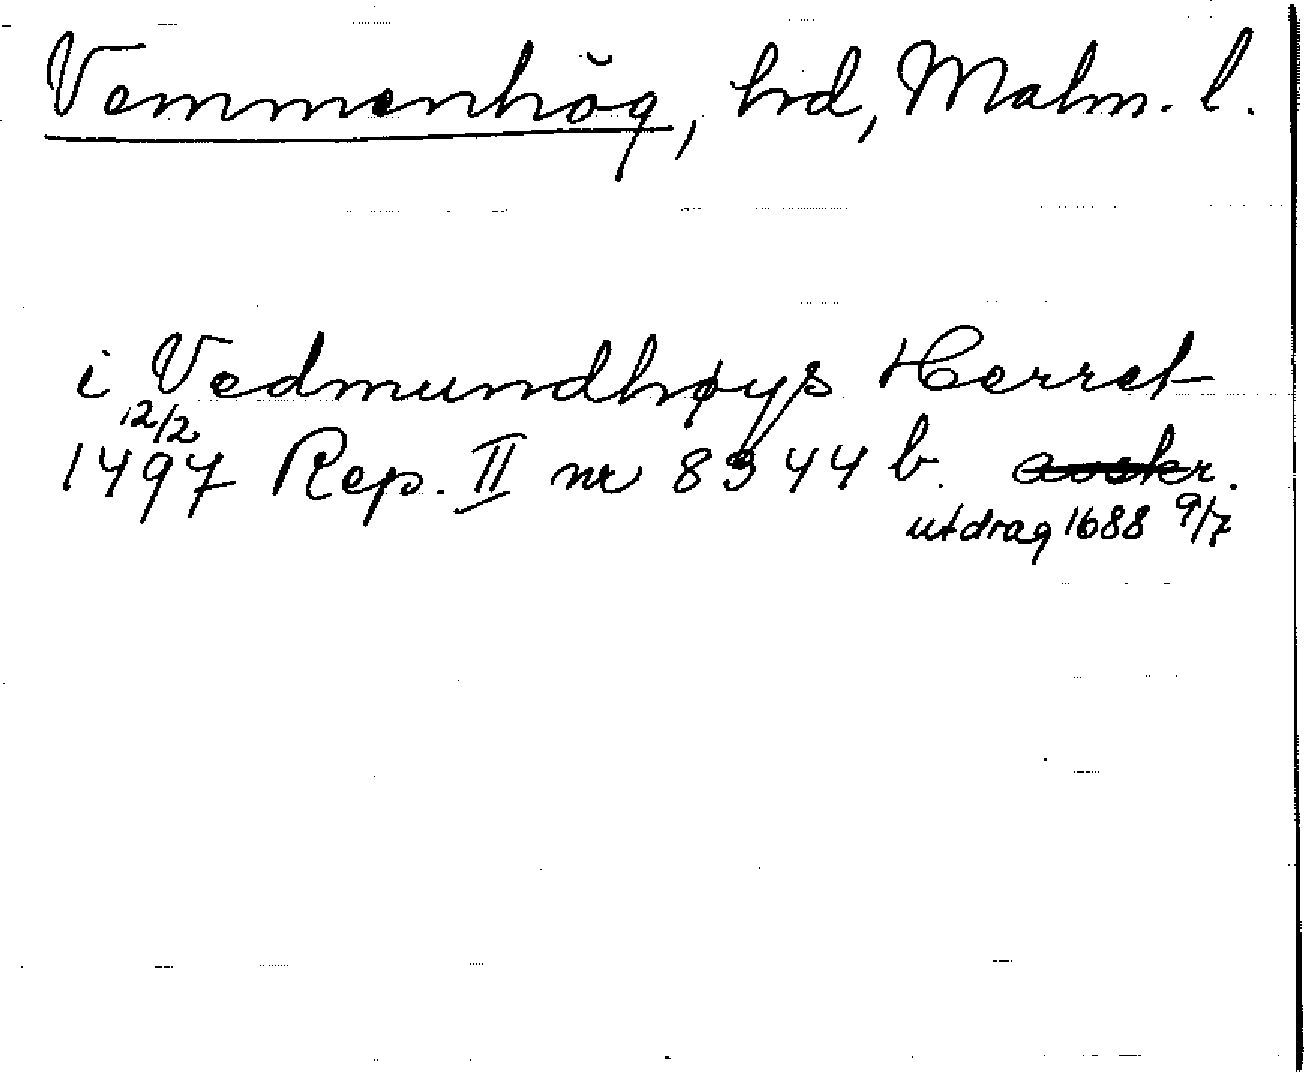 Vemmenhög, hd, Malm. l.
i Vedmundhøys Herret
12/2
1497 Rep. II nr 8344 b. avskr.
utdrag 1688 9/7